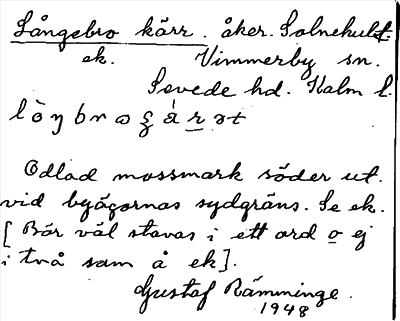 Långebro kärr. åker. Solnehult
ek. Vimmerby sn.
Sevede hd. Kalm l.
Odlad mossmark söder ut.
vid byägornas sydgräns. Se ek.
[Bör väl stavas i ett ord o ej
i två som å ek].
Gustaf Rämminge.
1948